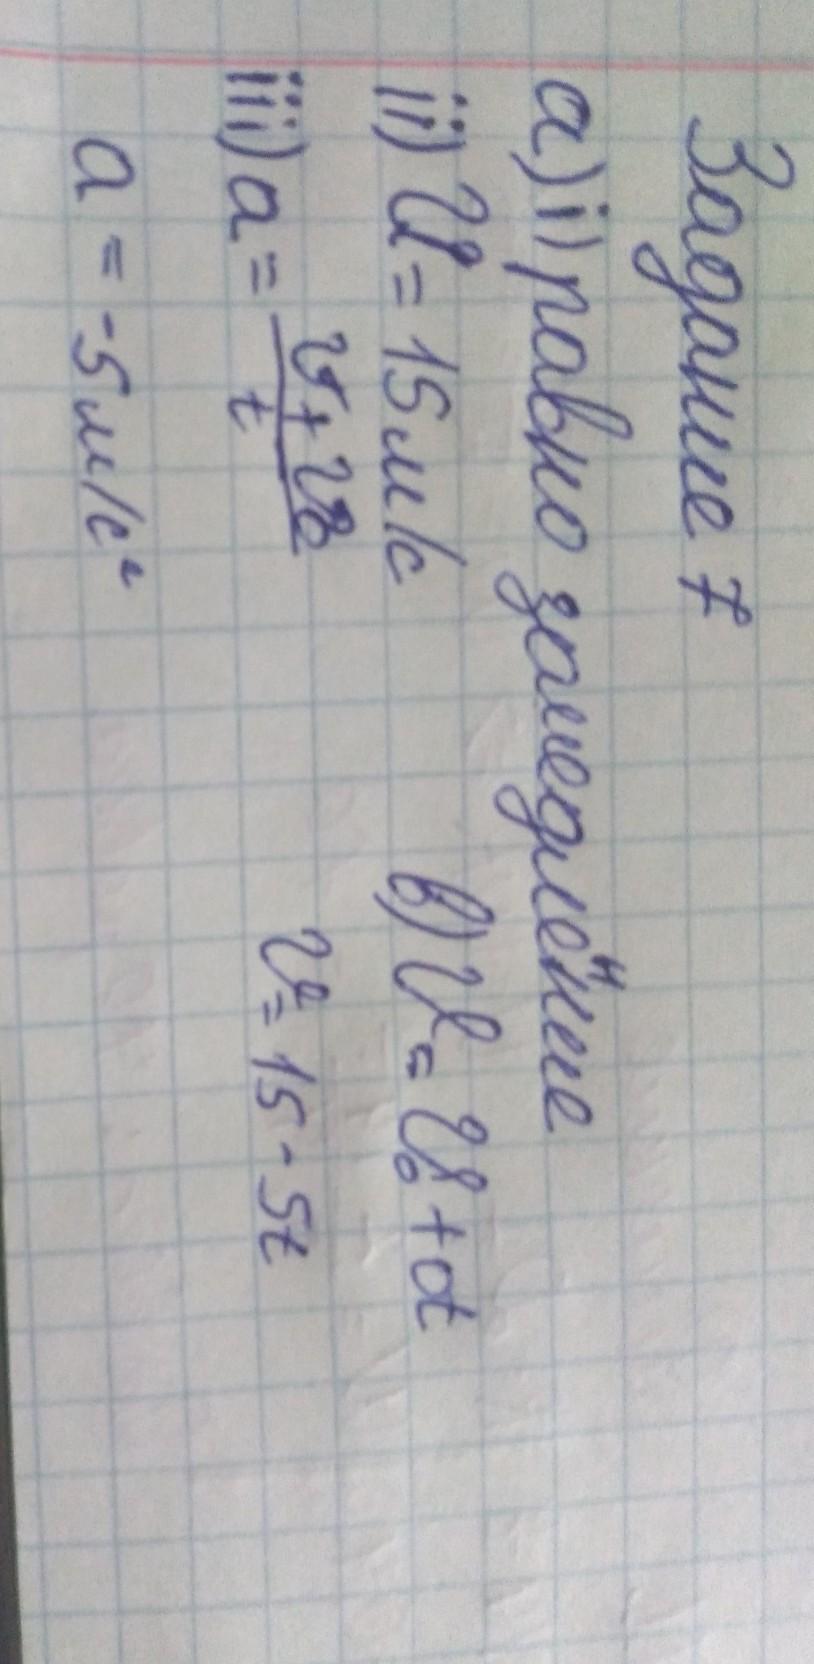 Задание 7
а) i) равно замедление
ii) v = 15 м/с
iii) a = (v + v₀)/t
a = -5 м/с²
в) v = v₀ + at
v = 15 - 5t